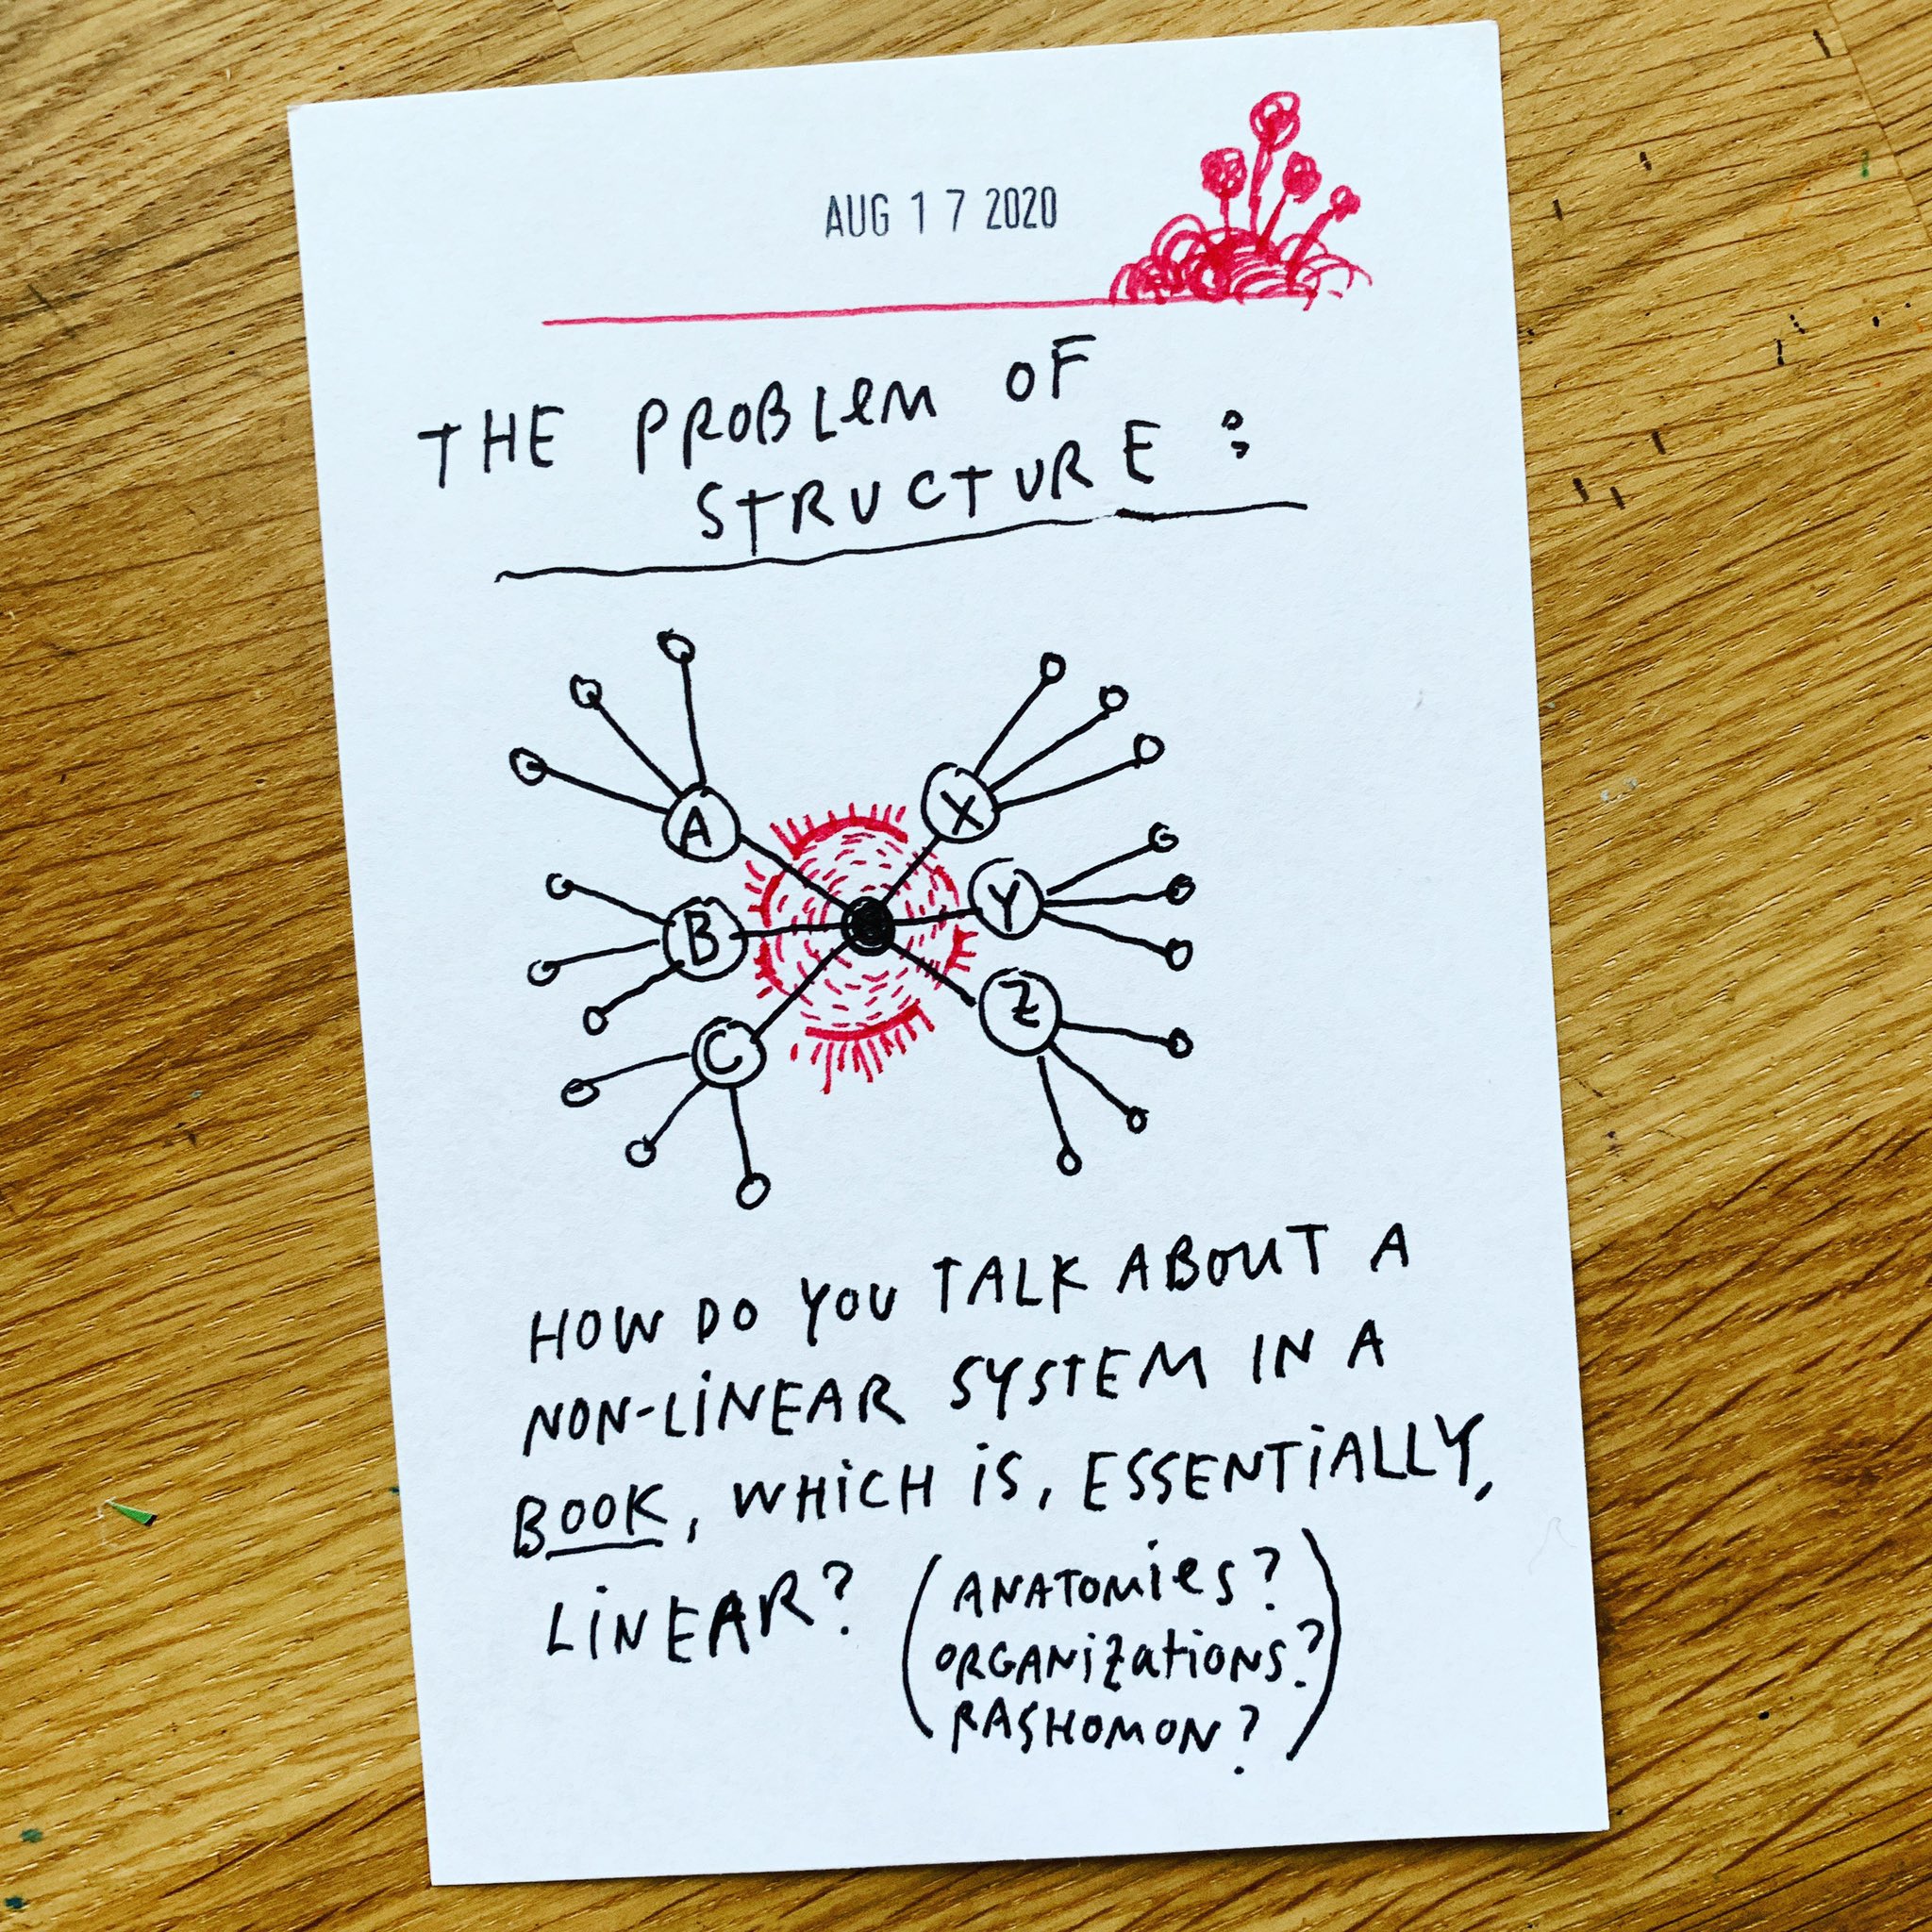 AUG 17 2020
THE PROBLEM OF
STRUCTURE:
A
X
B
Y
C
Z
HOW DO YOU TALK ABOUT A
NON-LINEAR SYSTEM IN A
BOOK, WHICH IS, ESSENTIALLY,
LINEAR? (ANATOMIES?
ORGANIZATIONS?
RASHOMON?)